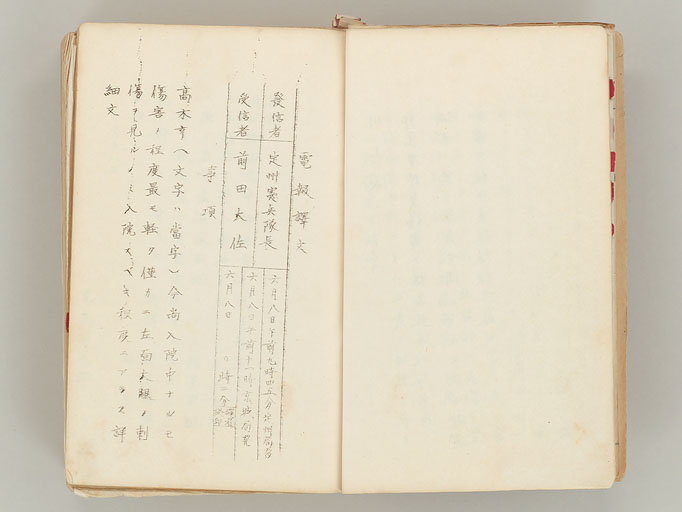 電報譯文
發信者 定州憲兵隊長 六月八日午前九時四五分定州局發
六月八日午前十一時京城局着
受信者 前田大佐 六月八日 時二分
事項
高木亨(文字ハ當字)今尚入院中ナルモ
傷害ノ程度最モ輕ク僅カニ左面大腿ノ刺
傷ヲ見ルノミ入院スベキ程度ニアラス詳
細文